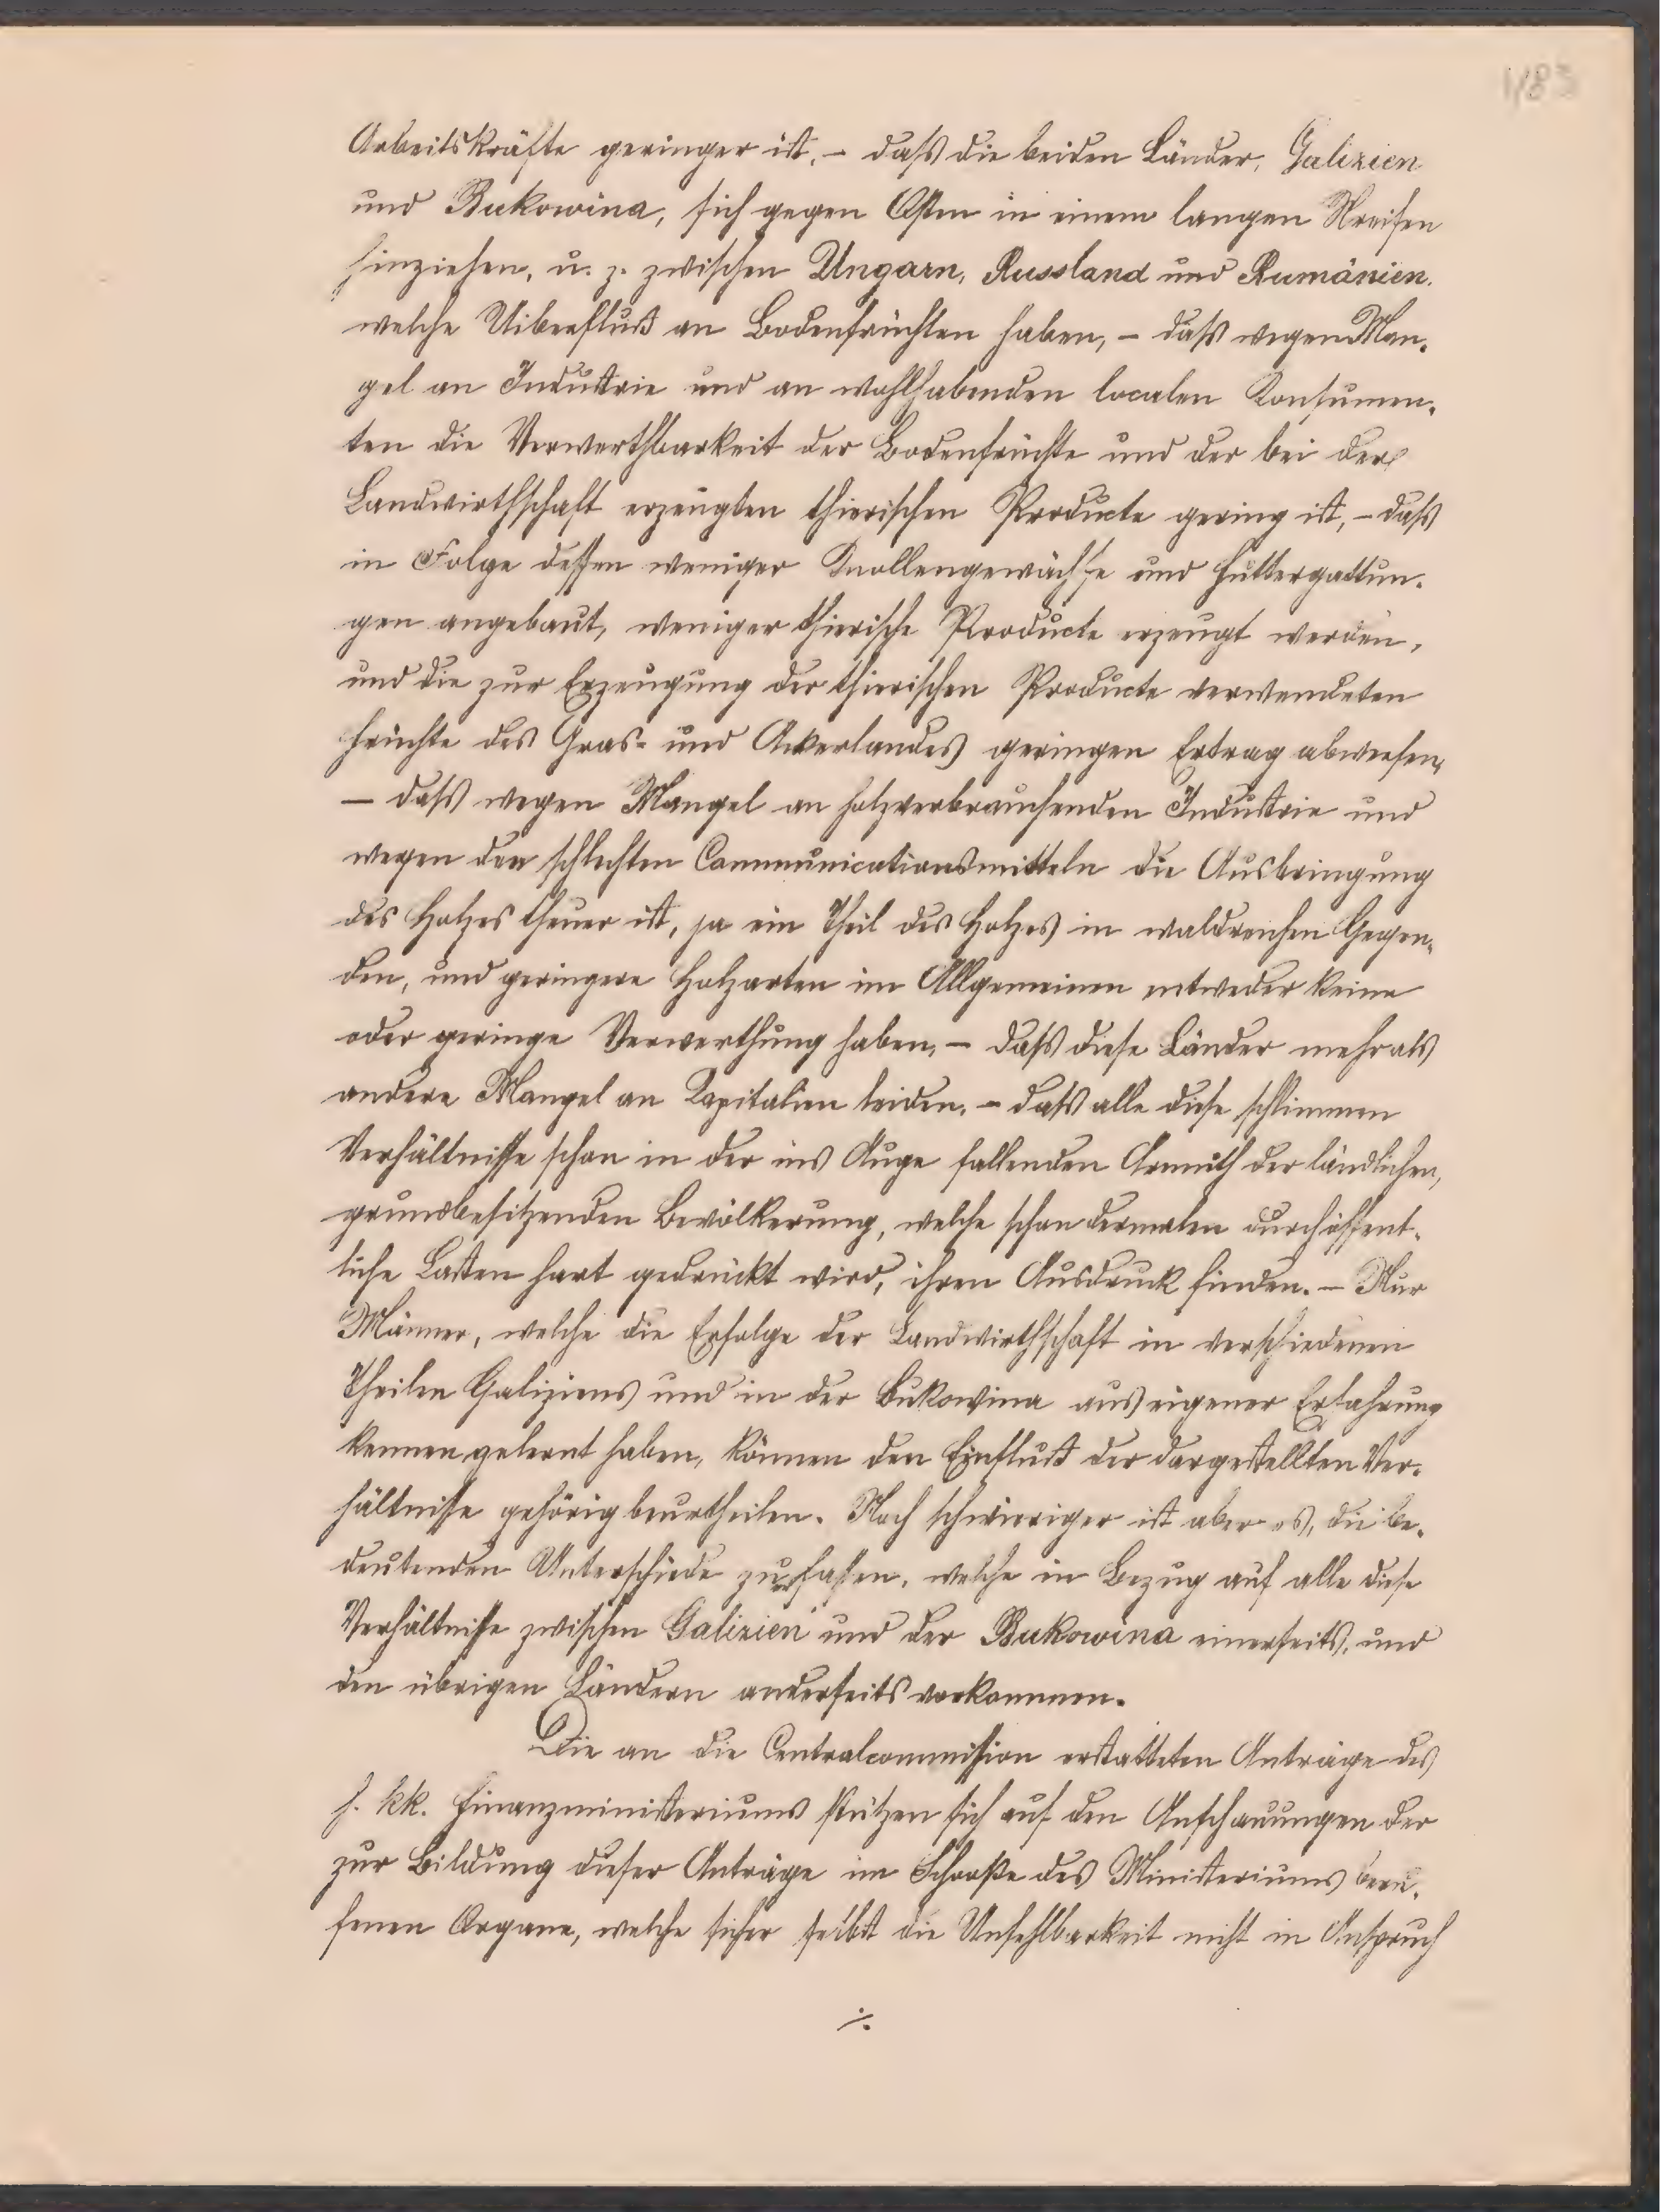 1183
Arbeitskräfte geringer ist, – daß die beiden Länder, Galizien
und Bukowina, sich gegen Osten in einem langen Streifen
hinziehen, u. z. zwischen Ungarn, Russland und Rumänien,
welche Uiberfluß an Bodenfrüchten haben, – daß wegen Man-
gel an Industrie und an wohlhabenden localen Konsumen-
ten die Verwerthbarkeit der Bodenfrüchte und der bei der
Landwirthschaft erzeugten thierischen Producte gering ist, – daß
in Folge dessen weniger Knollengewächse und Futtergattun-
gen angebaut, weniger thierische Producte erzeugt werden,
und die zur Erzeugung der thierischen Producte verwendeten
Früchte des Gras- und Ackerlandes geringen Ertrag abwerfen,
– daß wegen Mangel an holzverbrauchenden Industrie und
wegen den schlechten Communicationsmitteln die Ausbringung
des Holzes theuer ist, ja ein Theil des Holzes in waldreichen Gegen-
den, und geringere Holzarten im Allgemeinen entweder keine
oder geringe Verwerthung haben, – daß diese Länder mehr als
andere Mangel an Kapitalien leiden, – daß alle diese schlimmen
Verhältnisse schon in der ins Auge fallenden Armuth der ländlichen,
grundbesitzenden Bevölkerung, welche schon dermalen durch öffent-
liche Lasten hart gedrückt wird, ihren Ausdruck finden. – Nur
Männer, welche die Erfolge der Landwirthschaft in verschiedenen
Theilen Galiziens und in der Bukowina aus eigener Erfahrung
kennen gelernt haben, können den Einfluß der dargestellten Ver-
hältnisse gehörig beurtheilen. Noch schwieriger ist aber es, die be-
deutenden Unterschiede zu fassen, welche in Bezug auf alle diese
Verhältnisse zwischen Galizien und der Bukowina einerseits, und
den übrigen Ländern anderseits vorkommen.
Die an die Centralcommission erstatteten Anträge des
h. kk. Finanzministeriums stützen sich auf den Anschauungen der
zur Bildung dieser Anträge im Schooße des Ministeriums beru-
fenen Organe, welche sicher selbst die Unfehlbarkeit nicht in Anspruch
./.